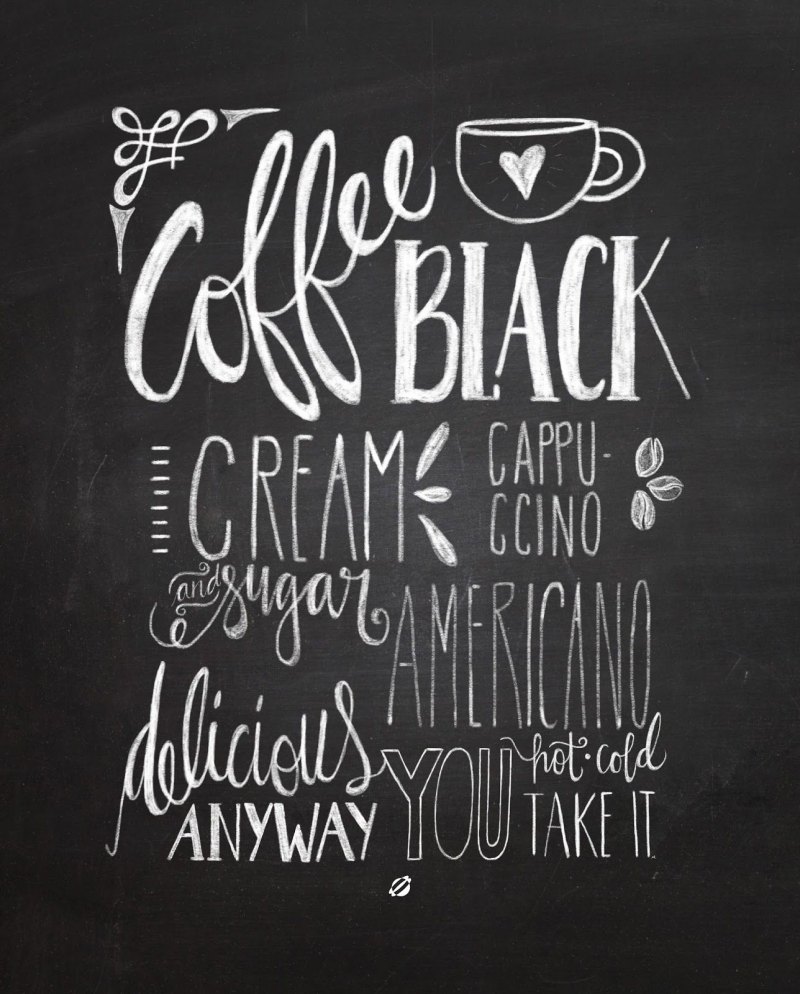 Coffee
BLACK
CREAM
CAPPU-
CCINO
and sugar
AMERICANO
delicious
hot·cold
ANYWAY YOU TAKE IT